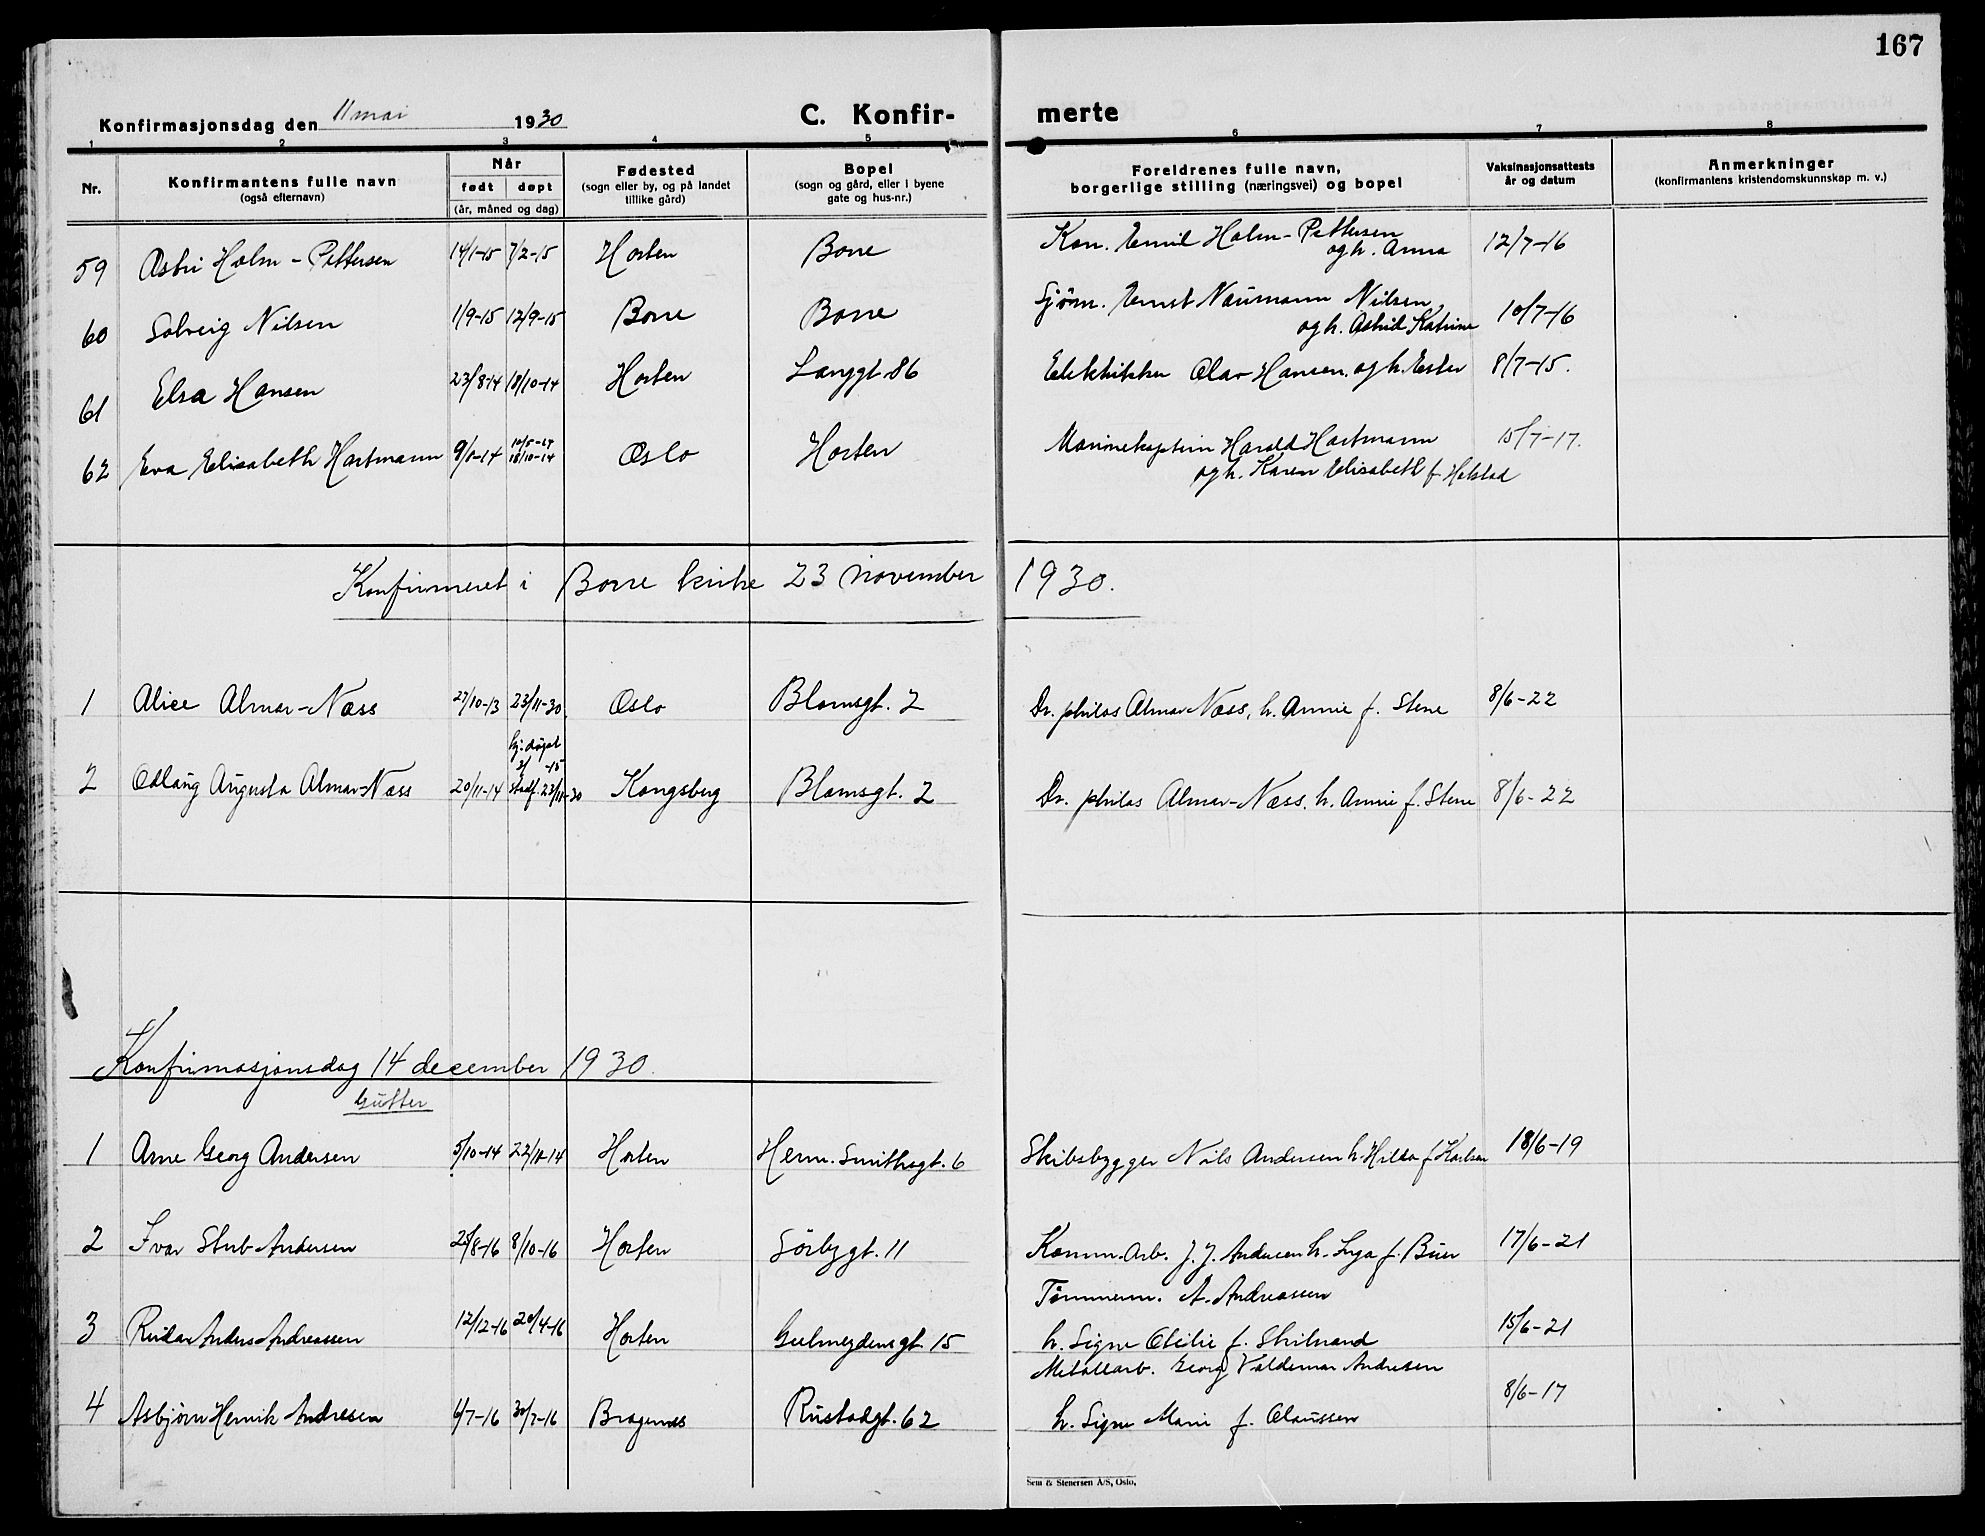 167
Konfirmasjonsdag den 11 mai 1930 C. Konfir- merte
1 2 3 4 5 6 7 8
Nr. Konfirmantens fulle navn (også efternavn) Når født døpt (år, måned og dag) Fødested (sogn eller by, og på landet tillike gård) Bopel (sogn og gård, eller i byene gate og hus-nr.) Foreldrenes fulle navn, borgerlige stilling (næringsvei) og bopel Vaksinasjonsattests år og datum Anmerkninger (konfirmantens kristendomskunnskap m. v.)
59 Astri Holm-Pettersen 14/1-15 7/2-15 Horten Borre Kon. Emil Holm-Pettersen 12/7-16
og h. Anna
60 Solveig Nilsen 1/9-15 12/9-15 Borre Borre Sjöm. Ernst Naumann Nilsen 10/7-16
og h. Astrid Katrine
61 Elsa Hansen 23/8-14 18/10-14 Horten Langgt. 86 Elektriker Olav Hansen og h. Ester 8/7-15.
62 Eva Elisabeth Hartmann 18/10-14 Oslo Horten Marinekaptein Harald Hartmann 15/7-17.
og h. Karen Elisabeth f.
Konfirmeret i Borre kirke 23 november 1930.
1 Alice Almar-Næss 27/10-13 23/11-30. Oslo Blomsgt. 2 Dr. philos Almar-Næss, h. Annie f. Stene 8/6-22
hj: døpt
-15
2 Odlaug Augusta Almar-Næss 20/11-14 Stadf. 23/11-30 Kongsberg Blomsgt. 2 Dr. philos Almar-Næss. h. Annie f. Stene 8/6-22
Konfirmasjonsdag 14 december 1930.
Gutter
1 Arne Georg Andersen 5/10-14 22/11-14 Horten Herm. Smithsgt. 6 Skibsbygger Nils Andersen h. Hilda f. Karlsen 18/6-19
2 Ivar Stub-Andersen 25/8-16 8/10-16 Horten Sörbygt. 11 Komm. Arb. J. J. Andersen h. Inga f. Buer 17/6-21
Tömmerm. A. Andreassen
3 Reidar Anders Andreassen 12/12-16 20/4-16 Horten Geelmeydensgt. 15 h. Signe Otilie f. 15/6-21
Metallarb. Georg Valdemar Andresen
4 Asbjørn Henrik Andresen 6/7-16 30/7-16 Bragernes Rustadgt. 62 h. Signe Marie f. Claussen 8/6-17
Sem & Stenersen A/S, Oslo.